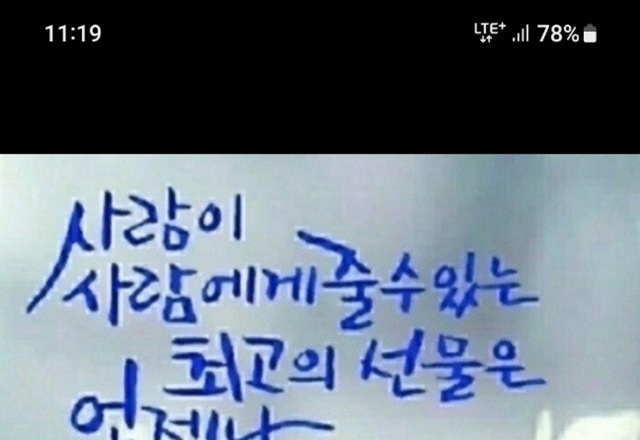 11:19 LTE+ 78%
사람이
사람에게 줄 수 있는
최고의 선물은
언제나